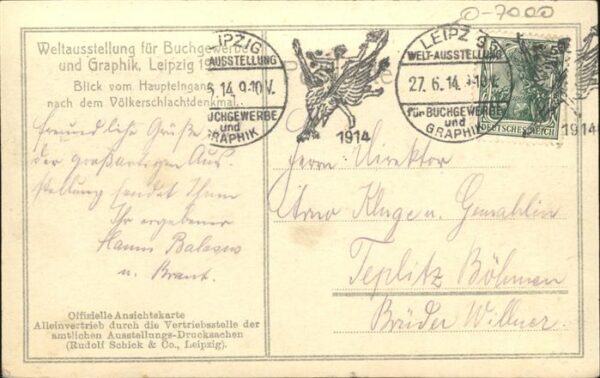 O-7000
Weltausstellung für Buchgewerbe
und Graphik, Leipzig 19
Blick vom Haupteingang
nach dem Völkerschlachtdenkmal.
LEIPZIG
AUSSTELLUNG
6.14.9-10V.
BUCHGEWERBE
und
GRAPHIK
1914
LEIPZIG
WELT-AUSSTELLUNG
27.6.14. 9-10V.
für BUCHGEWERBE
und
GRAPHIK
1914
DEUTSCHES REICH
5
freundliche Grüße
der großartigen Aus-
stellung sendet Ihnen
Ihr ergebener
Hanns
u. Braut.
Herrn Direktor
Arno Kluge u. Gemahlin
Teplitz Böhmen
Brüder Willner.
Offizielle Ansichtskarte
Alleinvertrieb durch die Vertriebsstelle der
amtlichen Ausstellungs-Drucksachen
(Rudolf Schick & Co., Leipzig).